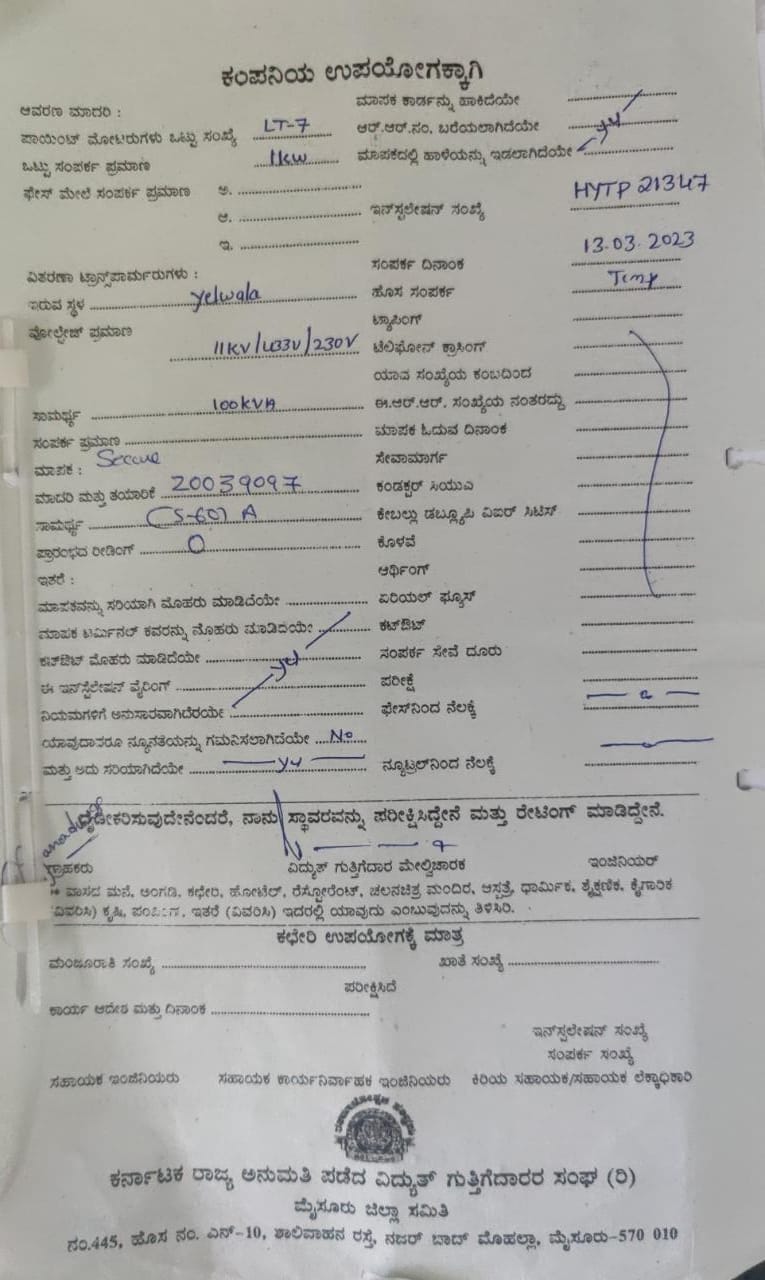 ಕಂಪನಿಯ ಉಪಯೋಗಕ್ಕಾಗಿ
ಆವರಣ ಮಾದರಿ :
ಪಾಯಿಂಟ್ ಮೋಟರುಗಳು ಒಟ್ಟು ಸಂಖ್ಯೆ LT-7
ಒಟ್ಟು ಸಂಪರ್ಕ ಪ್ರಮಾಣ 1kw
ಫೇಸ್ ಮೇಲೆ ಸಂಪರ್ಕ ಪ್ರಮಾಣ ಅ.
ಆ.
ಇ.
ವಿತರಣಾ ಟ್ರಾನ್ಸ್‌ಪಾರ್ಮರುಗಳು :
ಇರುವ ಸ್ಥಳ Yelwala
ವೋಲ್ಟೇಜ್ ಪ್ರಮಾಣ
11KV/433V/230V
ಸಾಮರ್ಥ್ಯ 100KVA
ಸಂಪರ್ಕ ಪ್ರಮಾಣ
ಮಾಪಕ : Secure
ಮಾದರಿ ಮತ್ತು ತಯಾರಿಕೆ 20039097
ಸಾಮರ್ಥ್ಯ A
ಪ್ರಾರಂಭದ ರೀಡಿಂಗ್ 0
ಇತರೆ :
ಮಾಪಕವನ್ನು ಸರಿಯಾಗಿ ಮೊಹರು ಮಾಡಿದೆಯೇ
ಮಾಪಕ ಟರ್ಮಿನಲ್ ಕವರನ್ನು ಮೊಹರು ಮಾಡಿದೆಯೇ
ಕಟ್‌ಔಟ್ ಮೊಹರು ಮಾಡಿದೆಯೇ
ಈ ಇನ್‌ಸ್ಟಲೇಷನ್ ವೈರಿಂಗ್
ನಿಯಮಗಳಿಗೆ ಅನುಸಾರವಾಗಿದೆಯೇ
ಯಾವುದಾದರೂ ನ್ಯೂನತೆಯನ್ನು ಗಮನಿಸಲಾಗಿದೆಯೇ No
ಮತ್ತು ಅದು ಸರಿಯಾಗಿದೆಯೇ
ಮಾಪಕ ಕಾರ್ಡನ್ನು ಹಾಕಿದೆಯೇ
ಆರ್.ಆರ್.ನಂ. ಬರೆಯಲಾಗಿದೆಯೇ
ಮಾಪಕದಲ್ಲಿ ಹಾಳೆಯನ್ನು ಇಡಲಾಗಿದೆಯೇ
ಇನ್‌ಸ್ಟಲೇಷನ್ ಸಂಖ್ಯೆ HYTP 21347
ಸಂಪರ್ಕ ದಿನಾಂಕ 13.03.2023
ಹೊಸ ಸಂಪರ್ಕ Temp
ಟ್ಯಾಪಿಂಗ್
ಟೆಲಿಫೋನ್ ಕ್ರಾಸಿಂಗ್
ಯಾವ ಸಂಖ್ಯೆಯ ಕಂಬದಿಂದ
ಈ.ಆರ್.ಆರ್. ಸಂಖ್ಯೆಯ ನಂತರದ್ದು
ಮಾಪಕ ಓದುವ ದಿನಾಂಕ
ಸೇವಾಮಾರ್ಗ
ಕಂಡಕ್ಟರ್ ಸಿಯುಎ
ಕೇಬಲ್ಲು ಡಬ್ಲ್ಯೂಪಿ ವಿಐಆರ್ ಸಿಟಿಸ್
ಕೊಳವೆ
ಆರ್ಥಿಂಗ್
ಏರಿಯಲ್ ಫ್ಯೂಸ್
ಕಟ್‌ಔಟ್
ಸಂಪರ್ಕ ಸೇವೆ ದೂರು
ಪರೀಕ್ಷೆ
ಫೇಸ್‌ನಿಂದ ನೆಲಕ್ಕೆ
ನ್ಯೂಟ್ರಲ್‌ನಿಂದ ನೆಲಕ್ಕೆ
ದೃಢೀಕರಿಸುವುದೇನೆಂದರೆ, ನಾನು ಸ್ಥಾವರವನ್ನು ಪರೀಕ್ಷಿಸಿದ್ದೇನೆ ಮತ್ತು ರೇಟಿಂಗ್ ಮಾಡಿದ್ದೇನೆ.
ಗ್ರಾಹಕರು ವಿದ್ಯುತ್ ಗುತ್ತಿಗೆದಾರ ಮೇಲ್ವಿಚಾರಕ ಇಂಜಿನಿಯರ್
** ವಾಸದ ಮನೆ, ಅಂಗಡಿ, ಕಛೇರಿ, ಹೋಟೆಲ್, ರೆಸ್ಟೋರೆಂಟ್, ಚಲನಚಿತ್ರ ಮಂದಿರ, ಆಸ್ಪತ್ರೆ, ಧಾರ್ಮಿಕ, ಶೈಕ್ಷಣಿಕ, ಕೈಗಾರಿಕ
(ವಿವರಿಸಿ) ಕೃಷಿ, ಪಂಪಿಂಗ್, ಇತರೆ (ವಿವರಿಸಿ) ಇದರಲ್ಲಿ ಯಾವುದು ಎಂಬುವುದನ್ನು ತಿಳಿಸಿರಿ.
ಕಛೇರಿ ಉಪಯೋಗಕ್ಕೆ ಮಾತ್ರ
ಮಂಜೂರಾತಿ ಸಂಖ್ಯೆ ಖಾತೆ ಸಂಖ್ಯೆ
ಪರೀಕ್ಷಿಸಿದೆ
ಕಾರ್ಯ ಆದೇಶ ಮತ್ತು ದಿನಾಂಕ
ಇನ್‌ಸ್ಪಲೇಷನ್ ಸಂಖ್ಯೆ
ಸಂಪರ್ಕ ಸಂಖ್ಯೆ
ಸಹಾಯಕ ಇಂಜಿನಿಯರು ಸಹಾಯಕ ಕಾರ್ಯನಿರ್ವಾಹಕ ಇಂಜಿನಿಯರು ಕಿರಿಯ ಸಹಾಯಕ/ಸಹಾಯಕ ಲೆಕ್ಕಾಧಿಕಾರಿ
ಕರ್ನಾಟಕ ರಾಜ್ಯ ಅನುಮತಿ ಪಡೆದ ವಿದ್ಯುತ್ ಗುತ್ತಿಗೆದಾರರ ಸಂಘ (ರಿ)
ಮೈಸೂರು ಜಿಲ್ಲಾ ಸಮಿತಿ
ನಂ.445, ಹೊಸ ನಂ. ಎನ್-10, ಶಾಲಿವಾಹನ ರಸ್ತೆ, ನಜರ್ ಬಾದ್ ಮೊಹಲ್ಲಾ, ಮೈಸೂರು-570 010